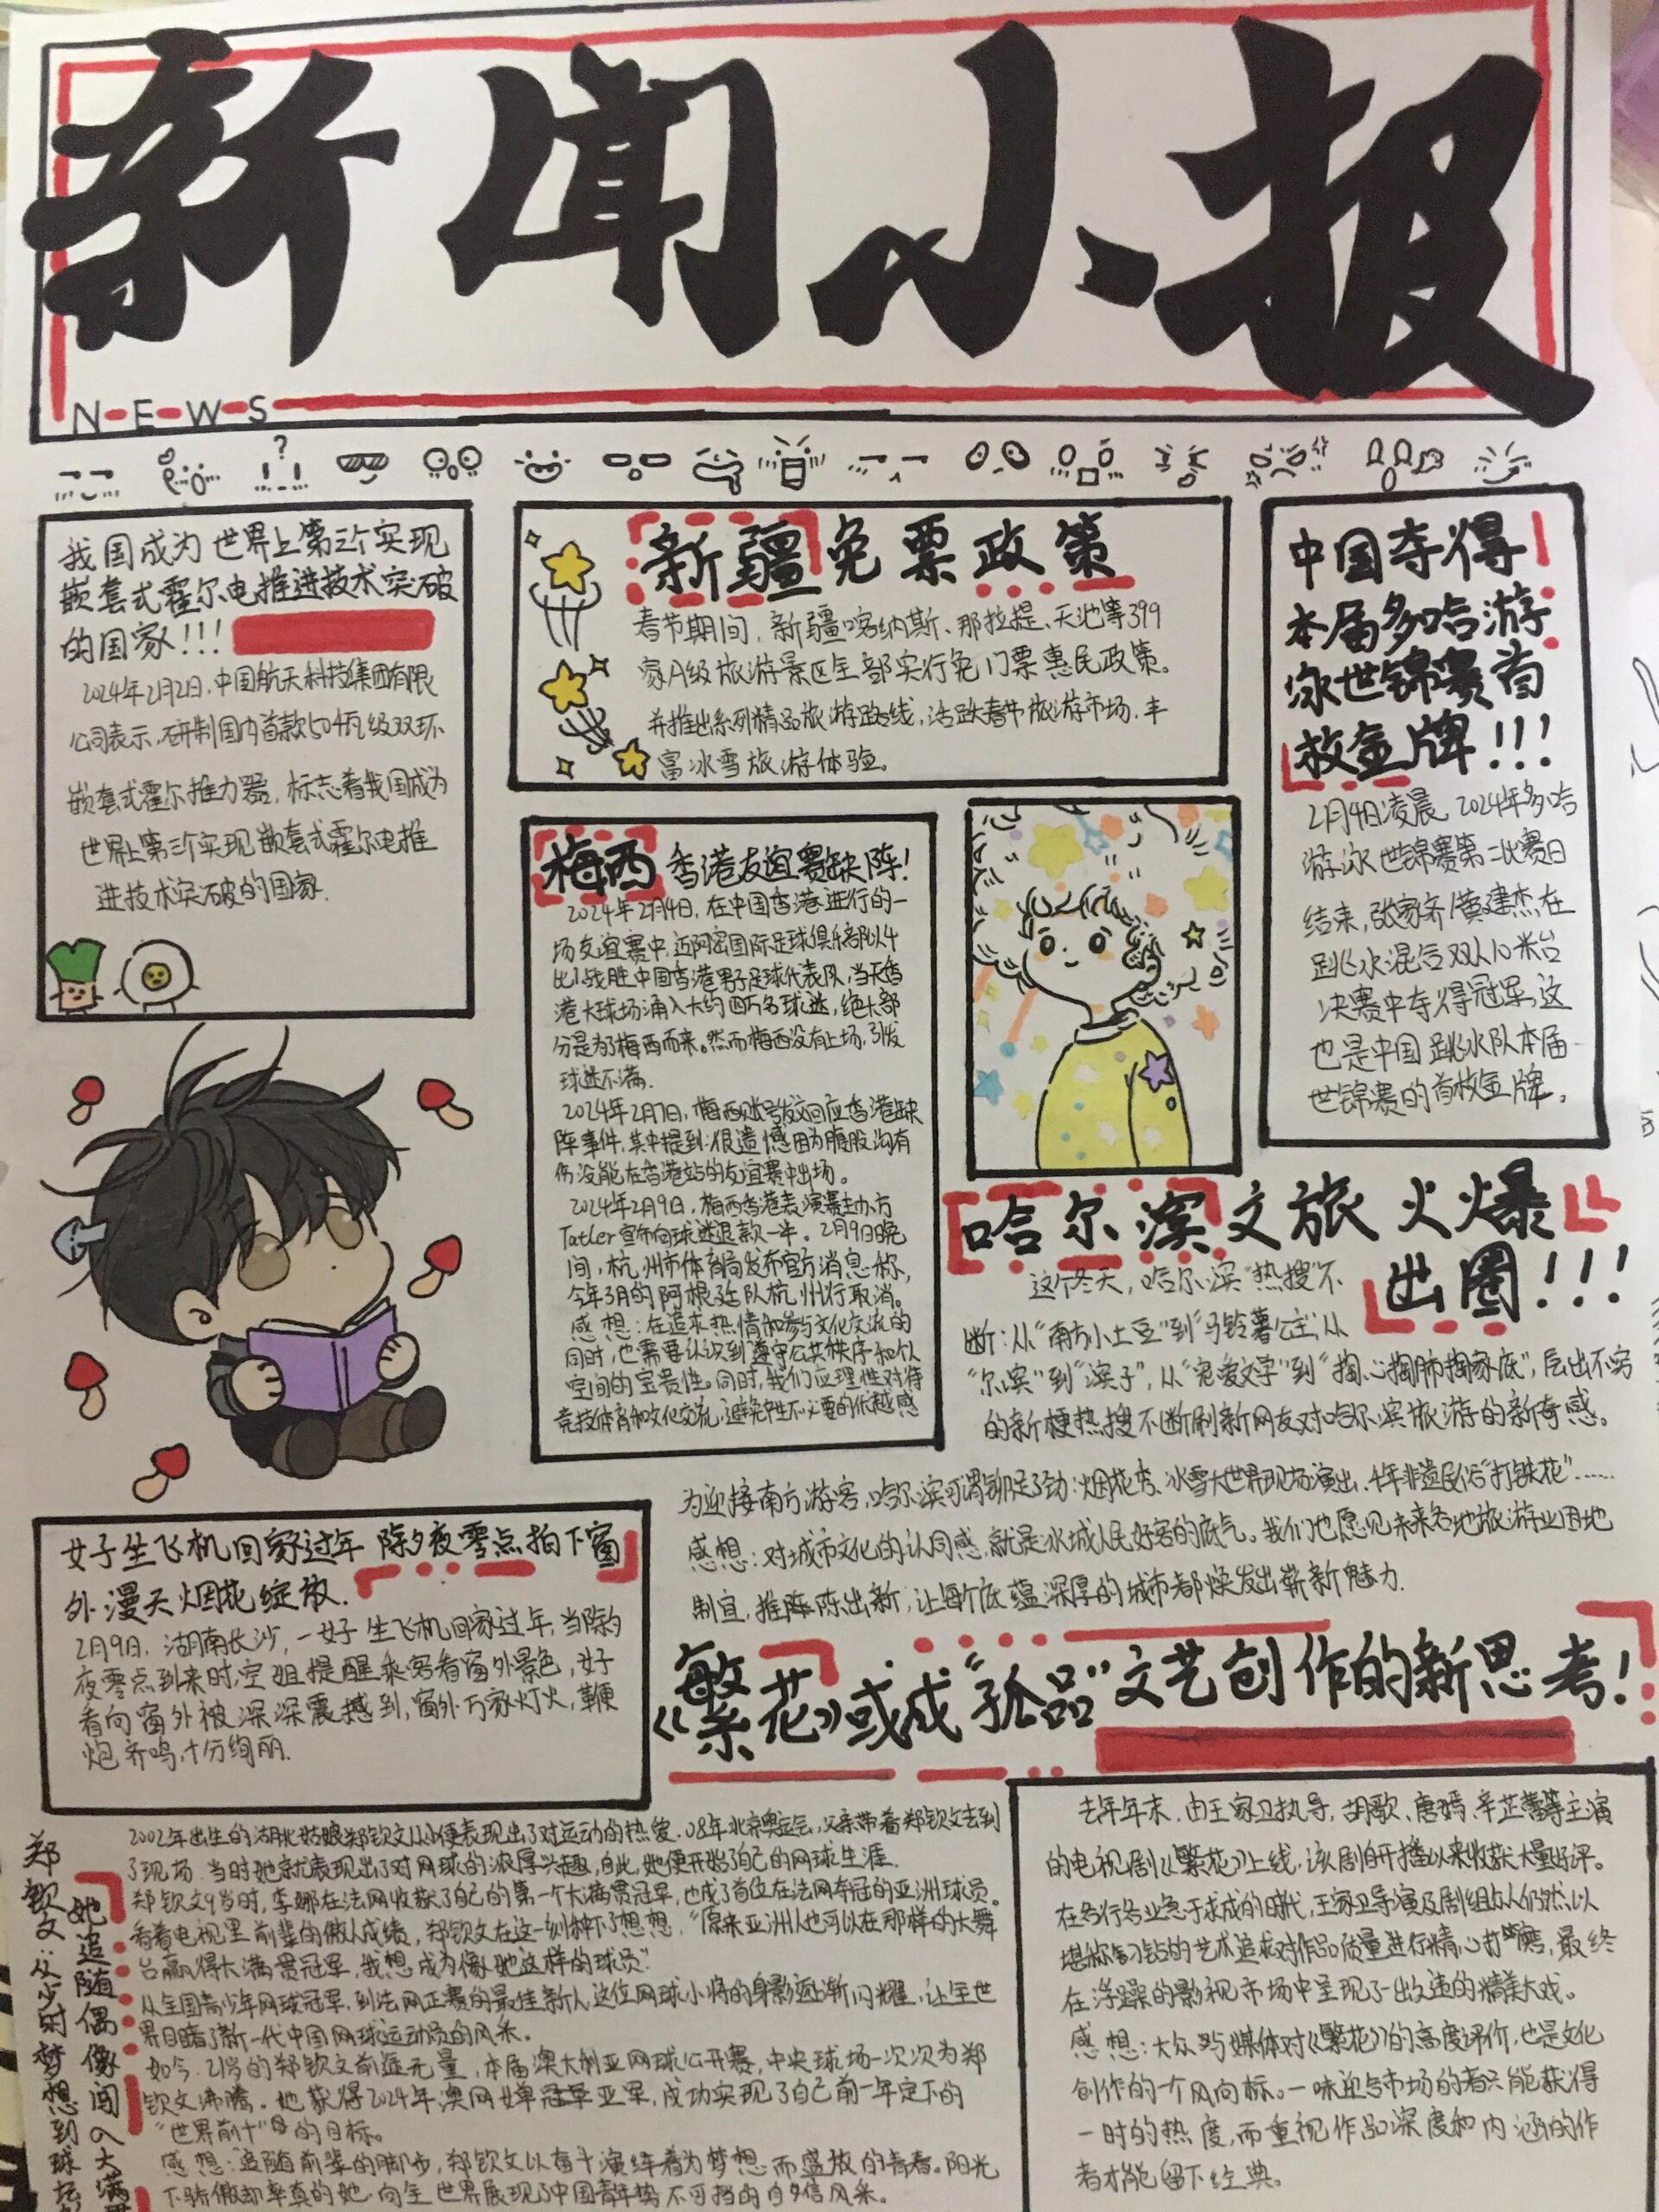 新闻小报
N-E-W-S
我国成为世界上第三个实现
嵌套式霍尔电推进技术突破
的国家!!!
2024年2月2日,中国航天科技集团有限
公司表示,研制国内首款50千瓦级双环
嵌套式霍尔推力器,标志着我国成为
世界上第三个实现嵌套式霍尔电推
进技术突破的国家.
新疆免票政策
春节期间,新疆喀纳斯、那拉提、天池等399
家A级旅游景区全部实行免门票惠民政策。
并推出系列精品旅游路线,活跃春节旅游市场,丰
富冰雪旅游体验。
中国夺得
本届多哈游
泳世锦赛首
枚金牌!!!
2月4日凌晨,2024年多哈
游泳世锦赛第二比赛日
结束,张家齐/黄建杰在
跳水混合双人10米台
决赛中夺得冠军,这
也是中国跳水队本届
世锦赛的首枚金牌。
梅西香港友谊赛缺阵!
2024年2月4日,在中国香港进行的一
场友谊赛中,迈阿密国际足球俱乐部队以4
比1战胜中国香港男子足球代表队,当天香
港大球场涌入大约四万名球迷,绝大部
分是为了梅西而来。然而梅西没有上场,引发
球迷不满.
2024年2月7日,梅西账号发文回应香港缺
阵事件,其中提到:很遗憾因为腹股沟有
伤没能在香港站的友谊赛中出场。
2024年2月9日,梅西香港表演赛主办方
Tatler宣布向球迷退款一半。2月9日晚
间,杭州市体育局发布官方消息称,
今年3月的阿根廷队杭州行取消。
感想:在追求热情和参与文化交流的
同时,也需要认识到遵守公共秩序和个人
空间的宝贵性。同时,我们应理性对待
竞技体育和文化交流,避免产生不必要的优越感
哈尔滨文旅火爆
出圈!!!
这个冬天,哈尔滨"热搜"不
断:从"南方小土豆"到"马铃薯公主",从
"尔滨"到"滨子",从"宠爱文学"到"掏心掏肺掏家底",层出不穷
的新梗热搜不断刷新网友对哈尔滨旅游的新奇感。
为迎接南方游客,哈尔滨可谓铆足了劲:烟花秀、冰雪大世界现场演出、千年非遗民俗"打铁花"……
感想:对城市文化的认同感,就是冰城人民好客的底气。我们也愿见未来各地旅游业因地
制宜,推陈出新,让每个底蕴深厚的城市都焕发出崭新魅力.
女子坐飞机回家过年 除夕夜零点拍下窗
外漫天烟花绽放.
2月9日,湖南长沙,一女子坐飞机回家过年,当除夕
夜零点到来时,空姐提醒乘客看窗外景色,女子
看向窗外被深深震撼到,窗外万家灯火,鞭
炮齐鸣,十分绚丽.
《繁花》或成"孤品"文艺创作的新思考!
去年年末,由王家卫执导,胡歌、唐嫣、辛芷蕾等主演
的电视剧《繁花》上线,该剧自开播以来收获大量好评。
在各行各业急于求成的时代,王家卫导演及剧组众人仍然以
堪称刁钻的艺术追求对作品质量进行精心打磨,最终
在浮躁的影视市场中呈现了一出久违的精美大戏。
感想:大众与媒体对《繁花》的高度评价,也是文化
创作的一个风向标。一味迎合市场的者只能获得
一时的热度,而重视作品深度和内涵的作
者才能留下经典。
郑钦文:从少时梦想到球坛
她追随偶像闯入大满
2002年出生的湖北姑娘郑钦文从小便表现出了对运动的热爱.08年北京奥运会,父亲带着郑钦文去到
了现场.当时她就表现出了对网球的浓厚兴趣,自此,她便开始了自己的网球生涯.
郑钦文9岁时,李娜在法网收获了自己的第一个大满贯冠军,也成了首位在法网夺冠的亚洲球员。
看着电视里前辈的傲人成绩,郑钦文在这一刻种下了想想,"原来亚洲人也可以在那样的大舞
台赢得大满贯冠军,我想成为像她这样的球员"
从全国青少年网球冠军,到法网正赛的最佳新人,这位网球小将的身影逐渐闪耀,让全世
界目睹了新一代中国网球运动员的风采。
如今,21岁的郑钦文前途无量,本届澳大利亚网球公开赛,中央球场一次次为郑
钦文沸腾。她获得2024年澳网女单冠军亚军,成功实现了自己前一年定下的
"世界前十"的目标。
感想:追随前辈的脚步,郑钦文以奋斗演绎着为梦想而盛放的青春。阳光
下骄傲却率真的她,向全世界展现了中国青年势不可挡的自信风采。